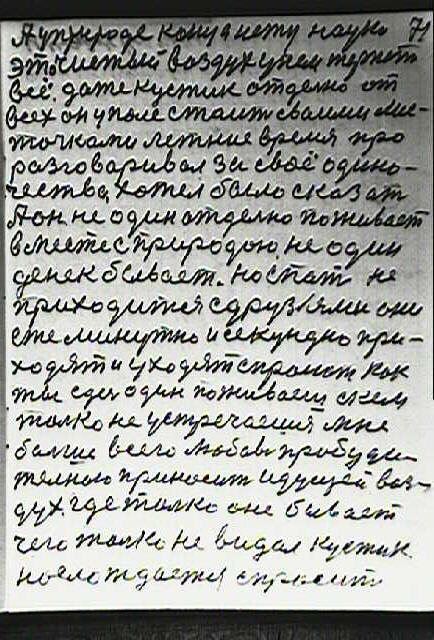 А уприроде концанету науко 71
это чистый воздух унем может
всё. даже кустик отделно от
всех он уполе стаит своими лис-
точками летние время про
разговаривал за своё одино-
чества, хотел было сказат
А он не один отделно поживает
вместе с природою, не один
денек бывает. но спат не
приходится сдрузлями они
еже минутно и секундно при-
ходят и уходят спросит как
ты сдес один поживаеш скем
толко не устречаешя мне
балше всего любов пробуди-
телною приносит идущей воз-
дух. где толко оне бывает
чего толко не видал кустик
насло ждается спросит